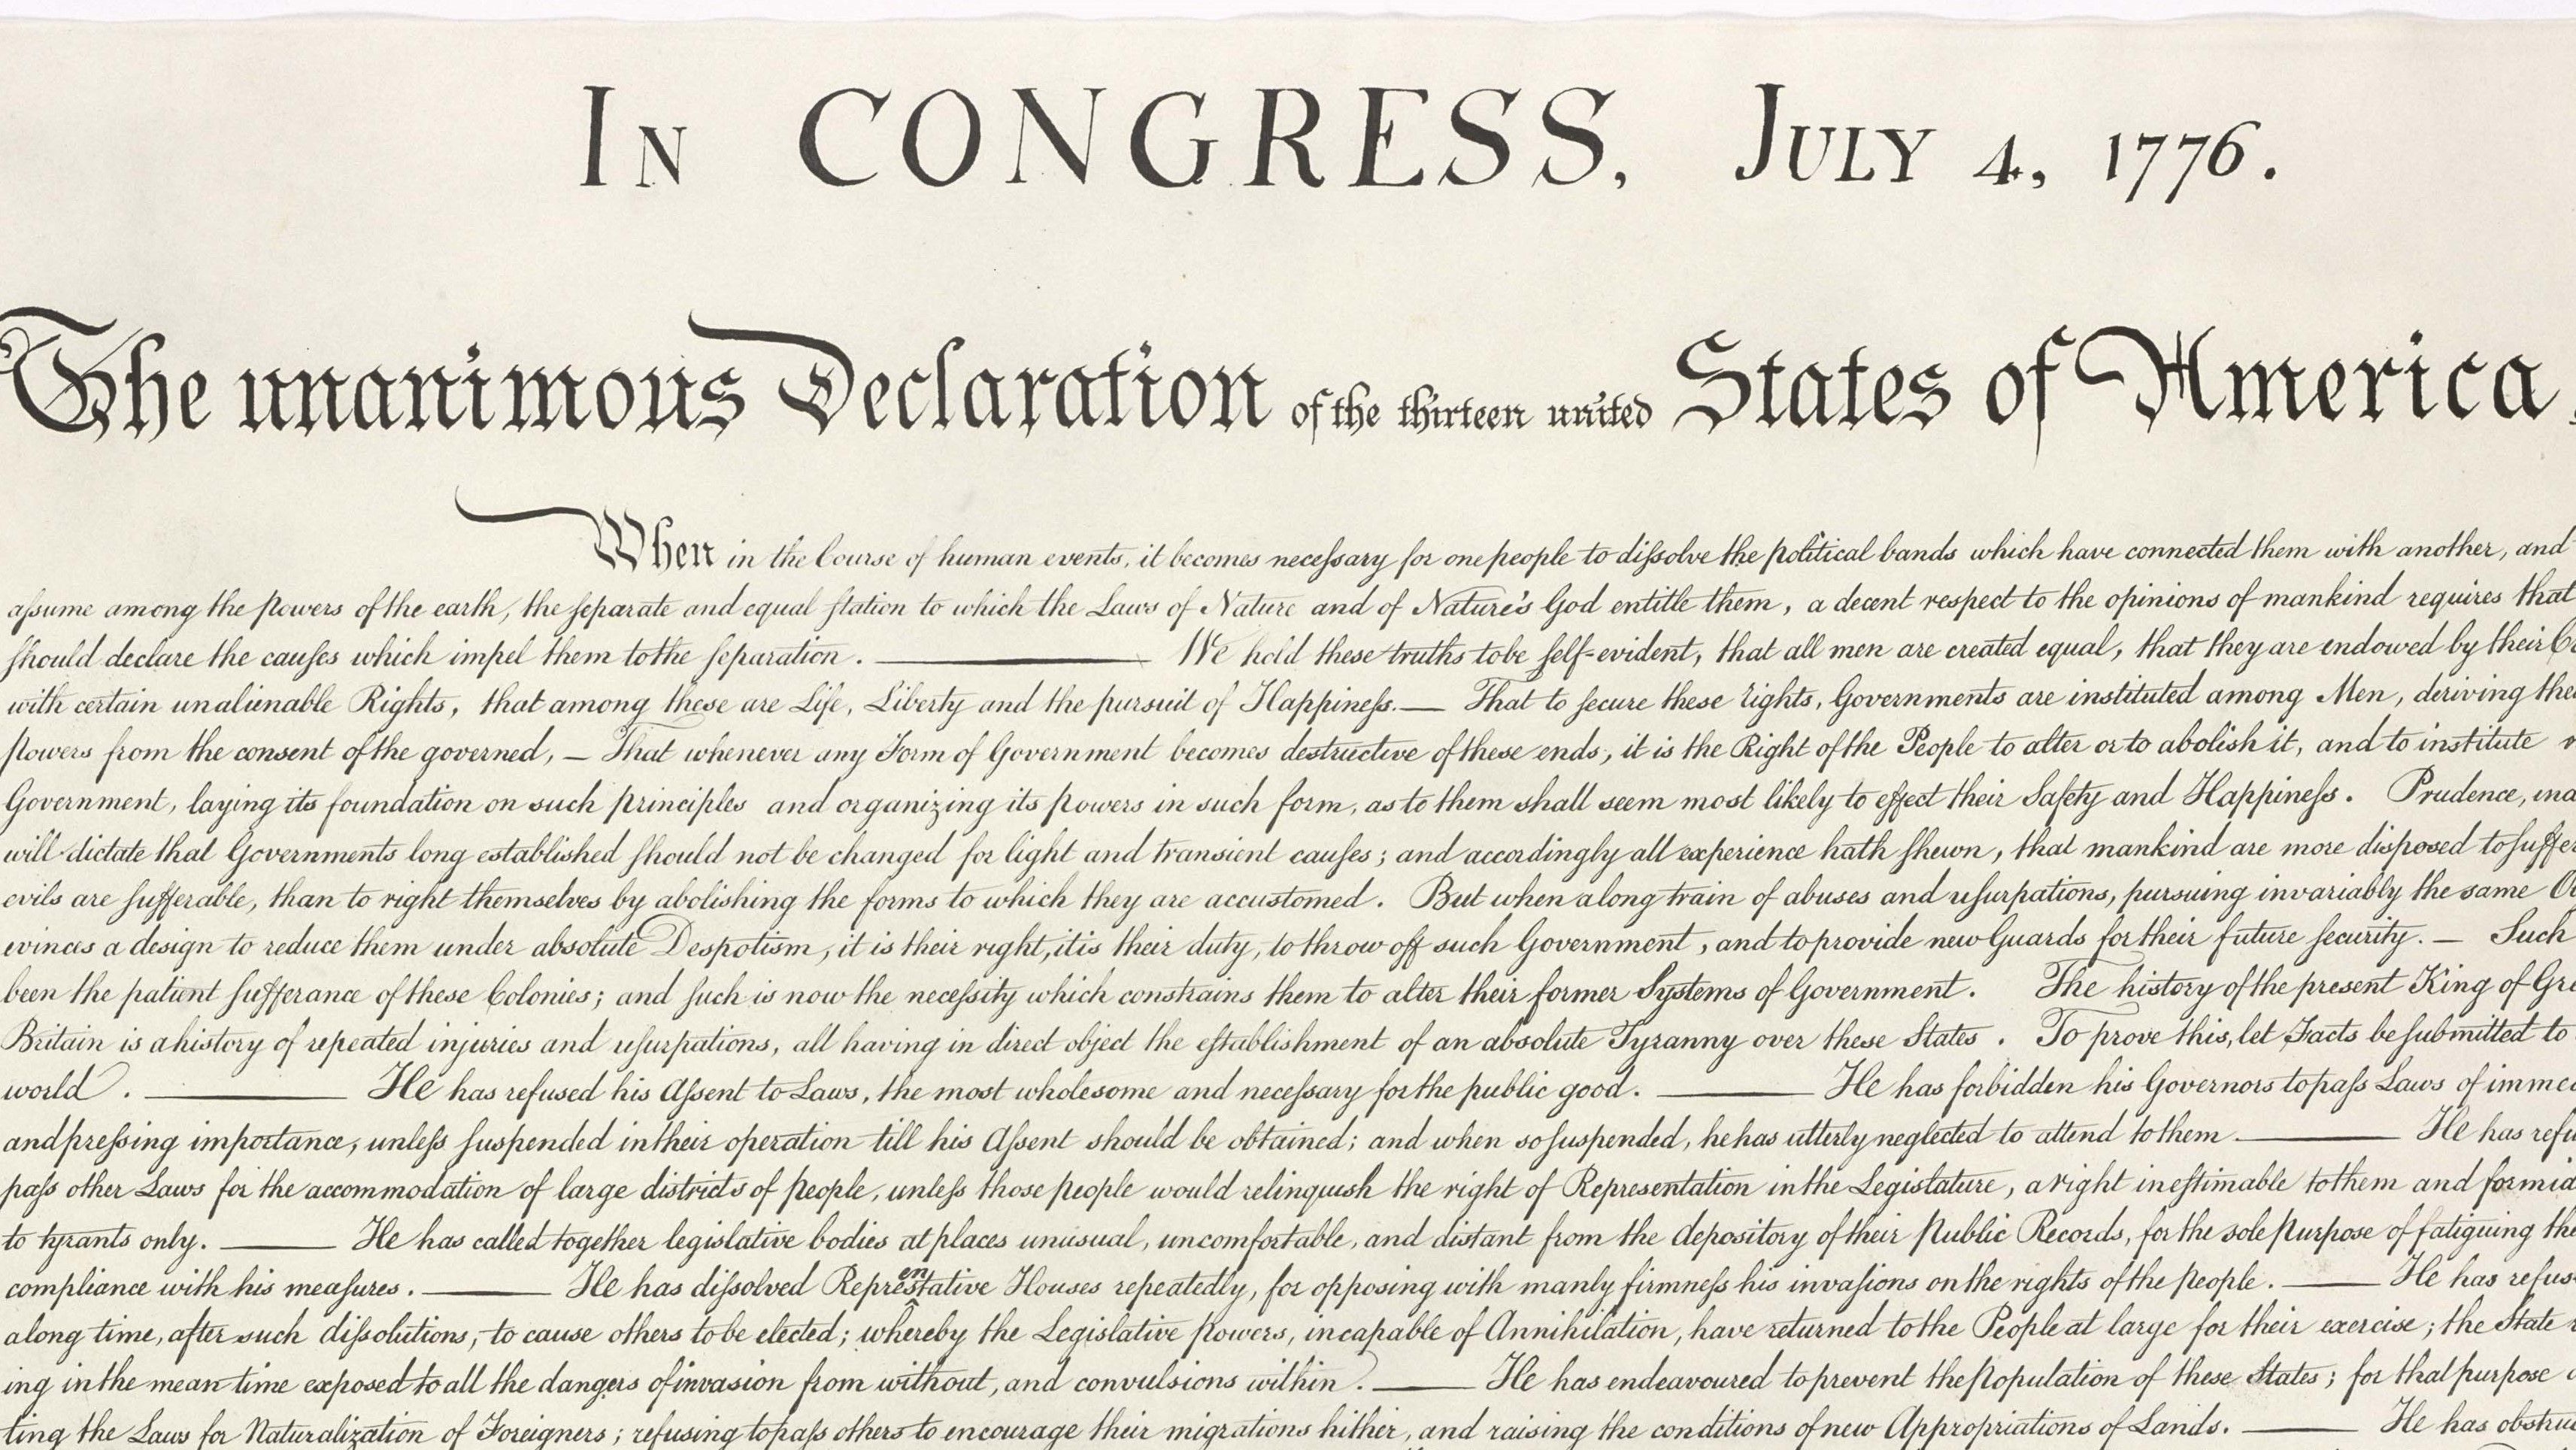 In CONGRESS, July 4, 1776.
The unanimous Declaration of the thirteen united States of America,
When in the Course of human events, it becomes necessary for one people to dissolve the political bands which have connected them with another, and
assume among the powers of the earth, the separate and equal station to which the Laws of Nature and of Nature's God entitle them, a decent respect to the opinions of mankind requires that
should declare the causes which impel them to the separation. — We hold these truths to be self-evident, that all men are created equal, that they are endowed by their
with certain unalienable Rights, that among these are Life, Liberty and the pursuit of Happiness. — That to secure these rights, Governments are instituted among Men, deriving
powers from the consent of the governed, — That whenever any Form of Government becomes destructive of these ends, it is the Right of the People to alter or to abolish it, and to institute
Government, laying its foundation on such principles and organizing its powers in such form, as to them shall seem most likely to effect their Safety and Happiness. Prudence,
will dictate that Governments long established should not be changed for light and transient causes; and accordingly all experience hath shewn, that mankind are more disposed to suffer
evils are sufferable, than to right themselves by abolishing the forms to which they are accustomed. But when a long train of abuses and usurpations, pursuing invariably the same
evinces a design to reduce them under absolute Despotism, it is their right, it is their duty, to throw off such Government, and to provide new Guards for their future security. — Such
been the patient sufferance of these Colonies; and such is now the necessity which constrains them to alter their former Systems of Government. The history of the present King of
Britain is a history of repeated injuries and usurpations, all having in direct object the establishment of an absolute Tyranny over these States. To prove this, let Facts be submitted to
world. — He has refused his Assent to Laws, the most wholesome and necessary for the public good. — He has forbidden his Governors to pass Laws of
and pressing importance, unless suspended in their operation till his Assent should be obtained; and when so suspended, he has utterly neglected to attend to them. — He has
pass other Laws for the accommodation of large districts of people, unless those people would relinquish the right of Representation in the Legislature, a right inestimable to them and
to tyrants only. — He has called together legislative bodies at places unusual, uncomfortable, and distant from the depository of their Public Records, for the sole purpose of fatiguing
compliance with his measures. — He has dissolved Representative Houses repeatedly, for opposing with manly firmness his invasions on the rights of the people. — He has
a long time, after such dissolutions, to cause others to be elected; whereby the Legislative powers, incapable of Annihilation, have returned to the People at large for their exercise; the State
ing in the mean time exposed to all the dangers of invasion from without, and convulsions within. — He has endeavoured to prevent the population of these States; for that purpose
ting the Laws for Naturalization of Foreigners; refusing to pass others to encourage their migrations hither, and raising the conditions of new Appropriations of Lands. — He has